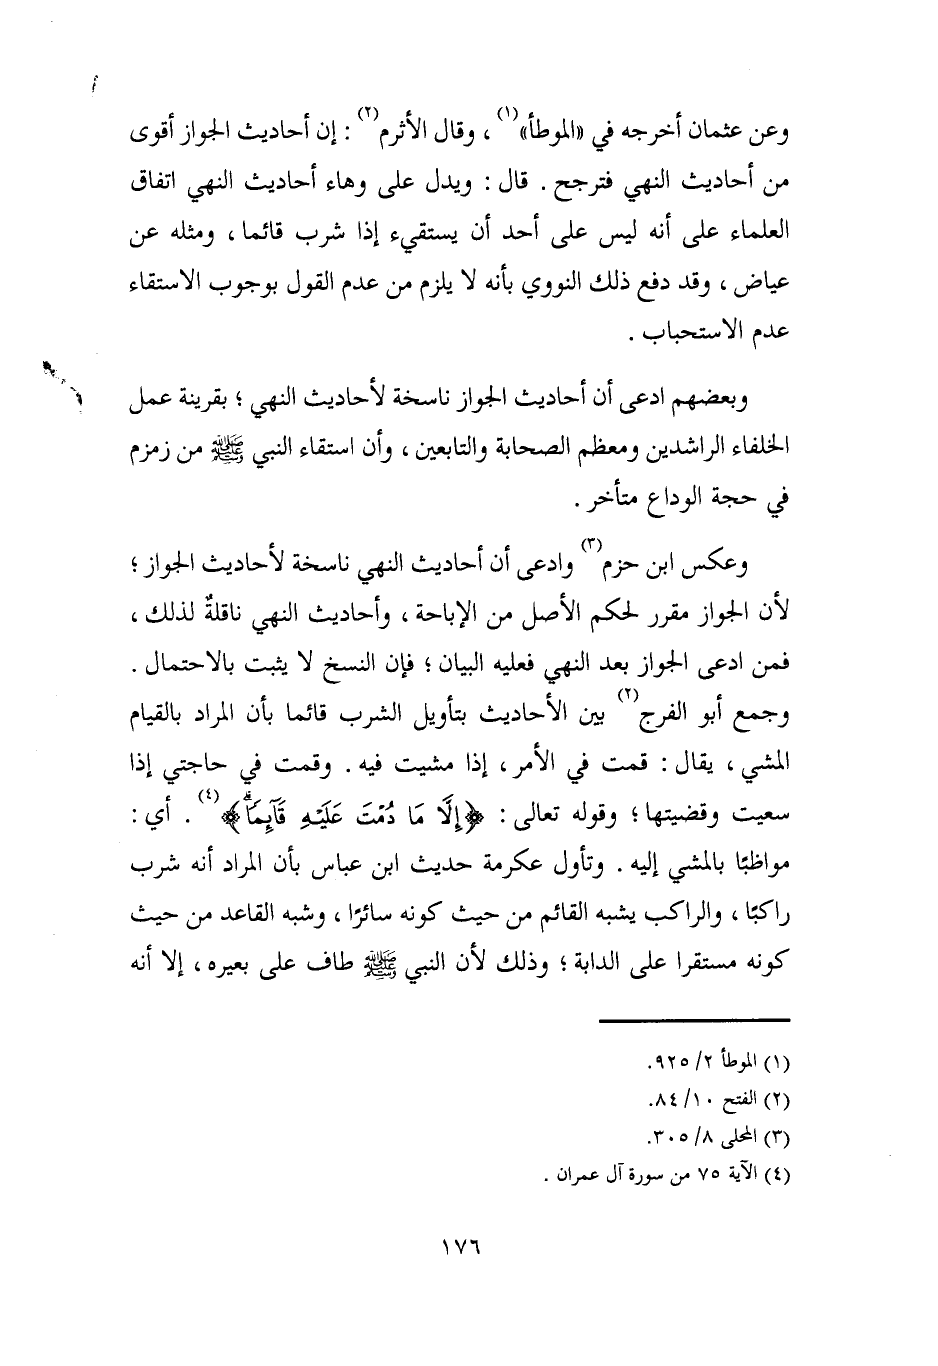 وعن عثمان أخرجه في «الموطأ»(١) ، وقال الأثرم(٢) : إن أحاديث الجواز أقوى
من أحاديث النهي فترجح . قال : ويدل على وهاء أحاديث النهي اتفاق
العلماء على أنه ليس على أحد أن يستقيء إذا شرب قائما ، ومثله عن
عياض ، وقد دفع ذلك النووي بأنه لا يلزم من عدم القول بوجوب الاستقاء
عدم الاستحباب .
وبعضهم ادعى أن أحاديث الجواز ناسخة لأحاديث النهي ؛ بقرينة عمل
الخلفاء الراشدين ومعظم الصحابة والتابعين ، وأن استقاء النبي ﷺ من زمزم
في حجة الوداع متأخر .
وعكس ابن حزم(٣) وادعى أن أحاديث النهي ناسخة لأحاديث الجواز ؛
لأن الجواز مقرر لحكم الأصل من الإباحة ، وأحاديث النهي ناقلةٌ لذلك ،
فمن ادعى الجواز بعد النهي فعليه البيان ؛ فإن النسخ لا يثبت بالاحتمال .
وجمع أبو الفرج(٢) بين الأحاديث بتأويل الشرب قائما بأن المراد بالقيام
المشي ، يقال : قمت في الأمر ، إذا مشيت فيه . وقمت في حاجتي إذا
سعيت وقضيتها ؛ وقوله تعالى : ﴿إِلَّا مَا دُمْتَ عَلَيْهِ قَآئِمًا﴾(٤) . أي :
مواظبًا بالمشي إليه . وتأول عكرمة حديث ابن عباس بأن المراد أنه شرب
راكبًا ، والراكب يشبه القائم من حيث كونه سائرًا ، وشبه القاعد من حيث
كونه مستقرا على الدابة ؛ وذلك لأن النبي ﷺ طاف على بعيره ، إلا أنه
(١) الموطأ ٢/ ٩٢٥.
(٢) الفتح ١٠/ ٨٤.
(٣) المحلى ٨/ ٣٠٥.
(٤) الآية ٧٥ من سورة آل عمران .
١٧٦